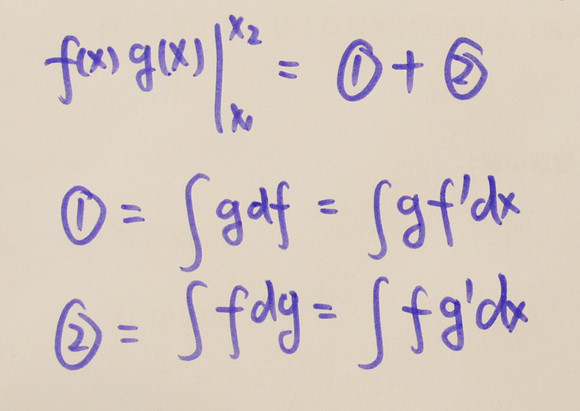 f(x) g(x) |_{x₁}^{x₂} = ① + ②
① = ∫ g df = ∫ g f' dx
② = ∫ f dg = ∫ f g' dx